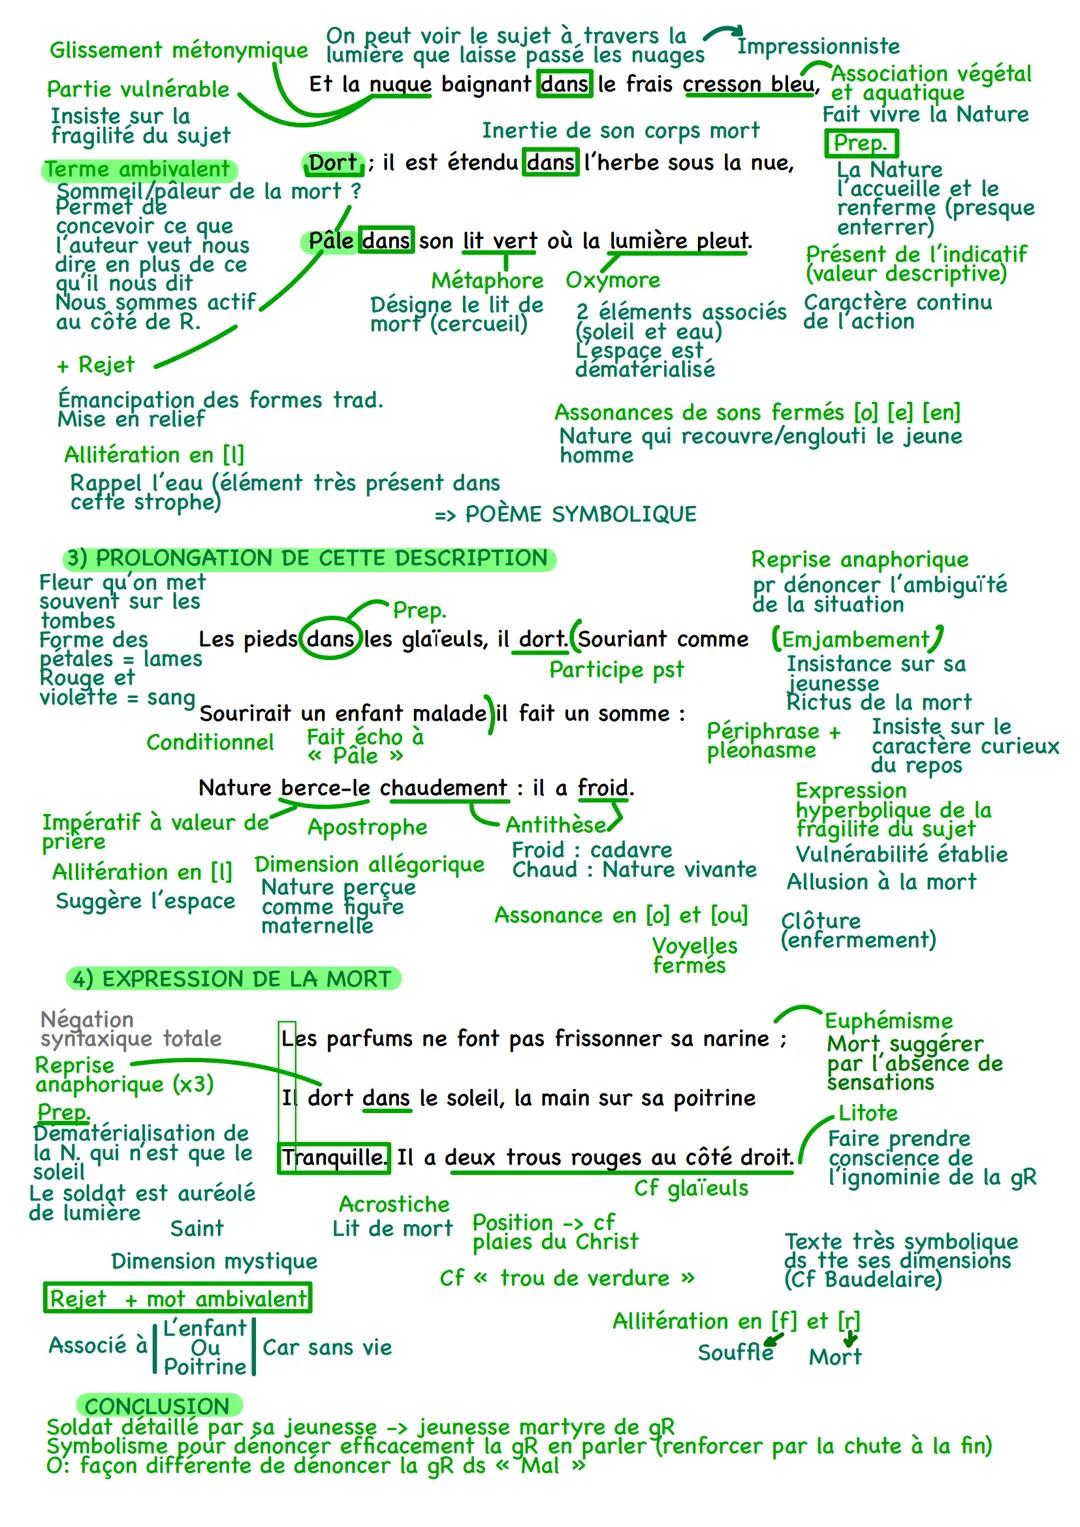 On peut voir le sujet à travers la
lumière que laisse passé les nuages
Impressionniste
Glissement métonymique
Partie vulnérable
Insiste sur la
fragilité du sujet
Et la nuque baignant dans le frais cresson bleu,
Association végétal
et aquatique
Fait vivre la Nature
Inertie de son corps mort
Prep.
La Nature
l'accueille et le
renferme (presque
enterrer)
Terme ambivalent
Sommeil/pâleur de la mort ?
Permet de
concevoir ce que
l'auteur veut nous
dire en plus de ce
qu'il nous dit
Nous sommes actif
au côté de R.
Dort ; il est étendu dans l'herbe sous la nue,
Pâle dans son lit vert où la lumière pleut.
Présent de l'indicatif
(valeur descriptive)
Caractère continu
de l'action
Métaphore
Désigne le lit de
mort (cercueil)
Oxymore
2 éléments associés
(soleil et eau)
L'espace est
dématérialisé
+ Rejet
Émancipation des formes trad.
Mise en relief
Assonances de sons fermés [o] [e] [en]
Nature qui recouvre/englouti le jeune
homme
Allitération en [l]
Rappel l'eau (élément très présent dans
cette strophe)
=> POÈME SYMBOLIQUE
3) PROLONGATION DE CETTE DESCRIPTION
Fleur qu'on met
souvent sur les
tombes
Forme des
pétales = lames
Rouge et
violette = sang
Reprise anaphorique
pr dénoncer l'ambiguïté
de la situation
Prep.
Les pieds dans les glaïeuls, il dort. (Souriant comme
Participe pst
(Emjambement)
Insistance sur sa
jeunesse
Rictus de la mort
Sourirait un enfant malade) il fait un somme :
Conditionnel
Fait écho à
« Pâle »
Périphrase +
pléonasme
Insiste sur le
caractère curieux
du repos
Nature berce-le chaudement : il a froid.
Impératif à valeur de
prière
Apostrophe
Antithèse
Froid : cadavre
Chaud : Nature vivante
Expression
hyperbolique de la
fragilité du sujet
Vulnérabilité établie
Allusion à la mort
Allitération en [l]
Suggère l'espace
Dimension allégorique
Nature perçue
comme figure
maternelle
Assonance en [o] et [ou]
Voyelles
fermés
Clôture
(enfermement)
4) EXPRESSION DE LA MORT
Négation
syntaxique totale
Reprise
anaphorique (x3)
Prep.
Dématérialisation de
la N. qui n'est que le
soleil
Le soldat est auréolé
de lumière
Saint
Dimension mystique
Les parfums ne font pas frissonner sa narine ;
Il dort dans le soleil, la main sur sa poitrine
Tranquille. Il a deux trous rouges au côté droit.
Euphémisme
Mort suggérer
par l'absence de
sensations
Litote
Faire prendre
conscience de
l'ignominie de la gR
Cf glaïeuls
Acrostiche
Lit de mort
Position -> cf
plaies du Christ
Cf « trou de verdure »
Texte très symbolique
ds tte ses dimensions
(Cf Baudelaire)
Rejet + mot ambivalent
Associé à
L'enfant
Ou
Poitrine
Car sans vie
Allitération en [f] et [r]
Souffle
Mort
CONCLUSION
Soldat détaillé par sa jeunesse -> jeunesse martyre de gR
Symbolisme pour dénoncer efficacement la gR en parler (renforcer par la chute à la fin)
O: façon différente de dénoncer la gR ds « Mal »